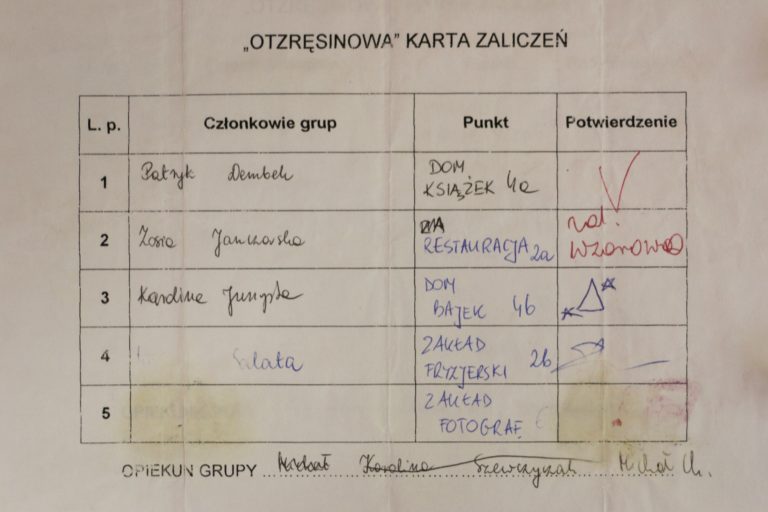 „OTZRĘSINOWA” KARTA ZALICZEŃ
L. p. Członkowie grup Punkt Potwierdzenie
1 Patryk Dembek DOM
KSIĄŻEK 4a
2 Zosia Janczarska RESTAURACJA 2a zal.
WZOROWO
3 Karolina DOM
BAJEK 4b
4 Sałata ZAKŁAD
FRYZJERSKI 2b
5 ZAKŁAD
FOTOGRAF.
OPIEKUN GRUPY Michał Karolina Szewczyzak Michał Ch.